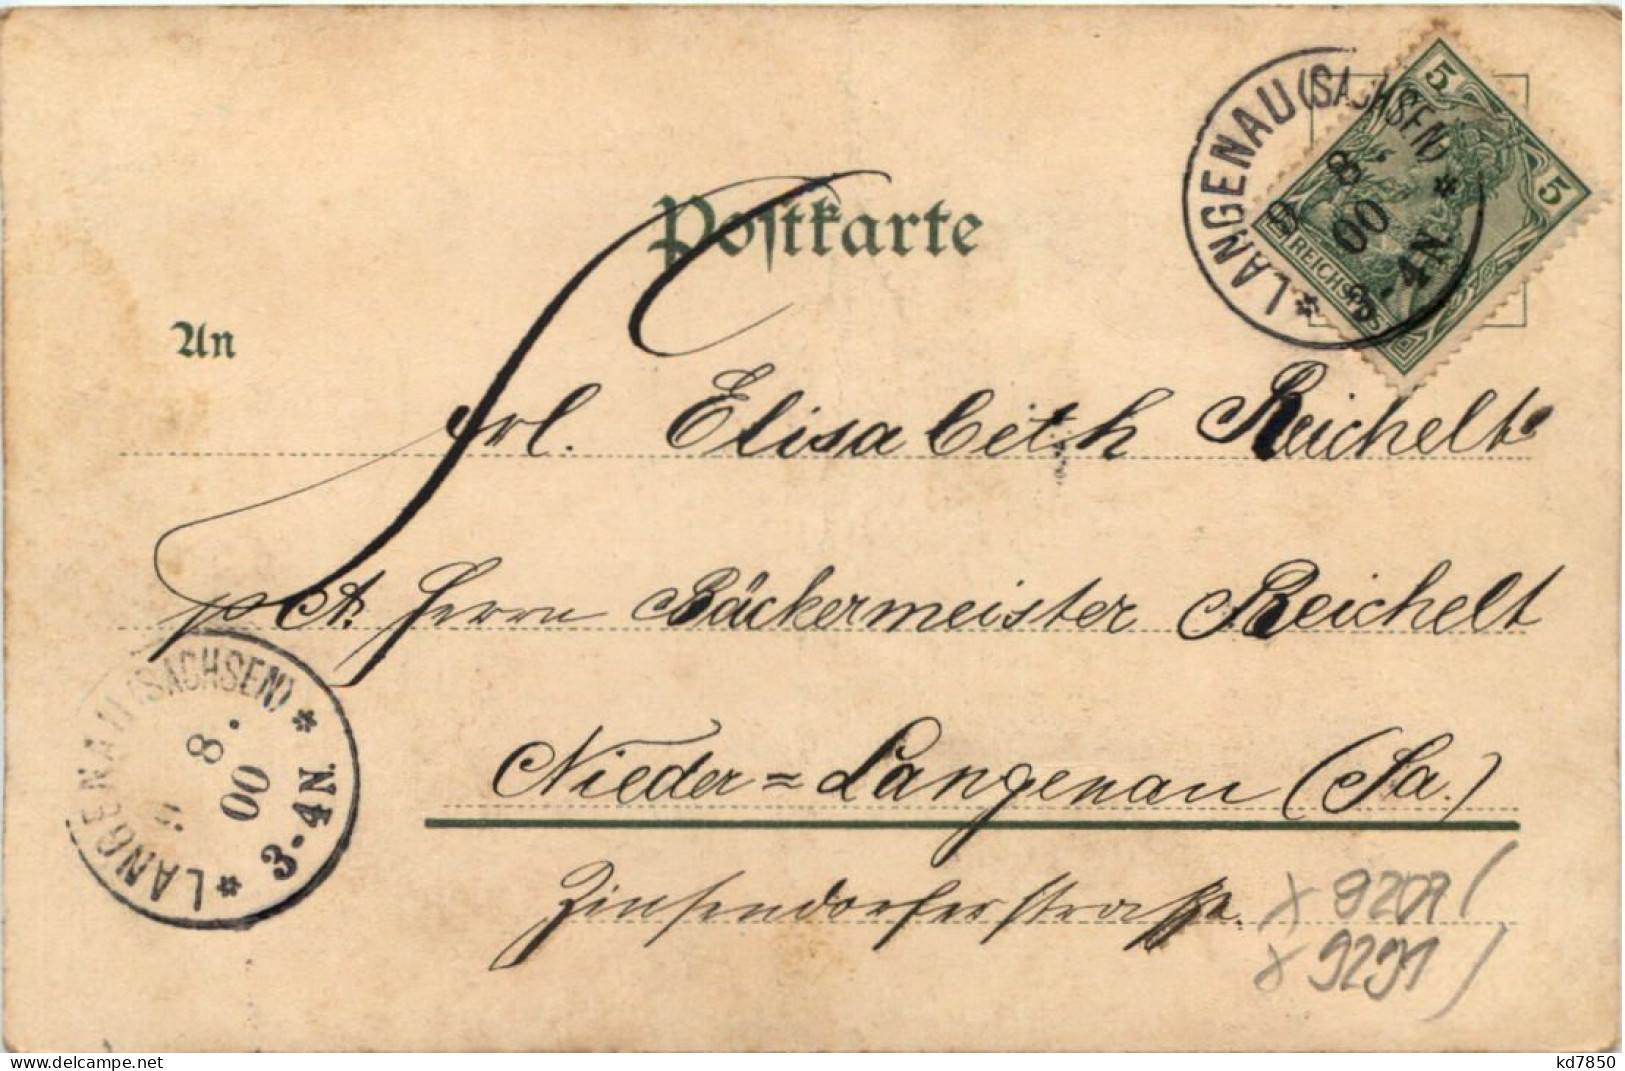 Postkarte
* LANGENAU (SACHSEN) *
9 8. 00
3-4N.
5 5
REICHSPOST
An
Frl. Elisabeth Reichelt
p. A. Herrn Bäckermeister Reichelt
Nieder=Langenau (Sa.)
* LANGENAU (SACHSEN) *
8. 00
3-4N.
x 9291
www.delcampe.net
kd7850